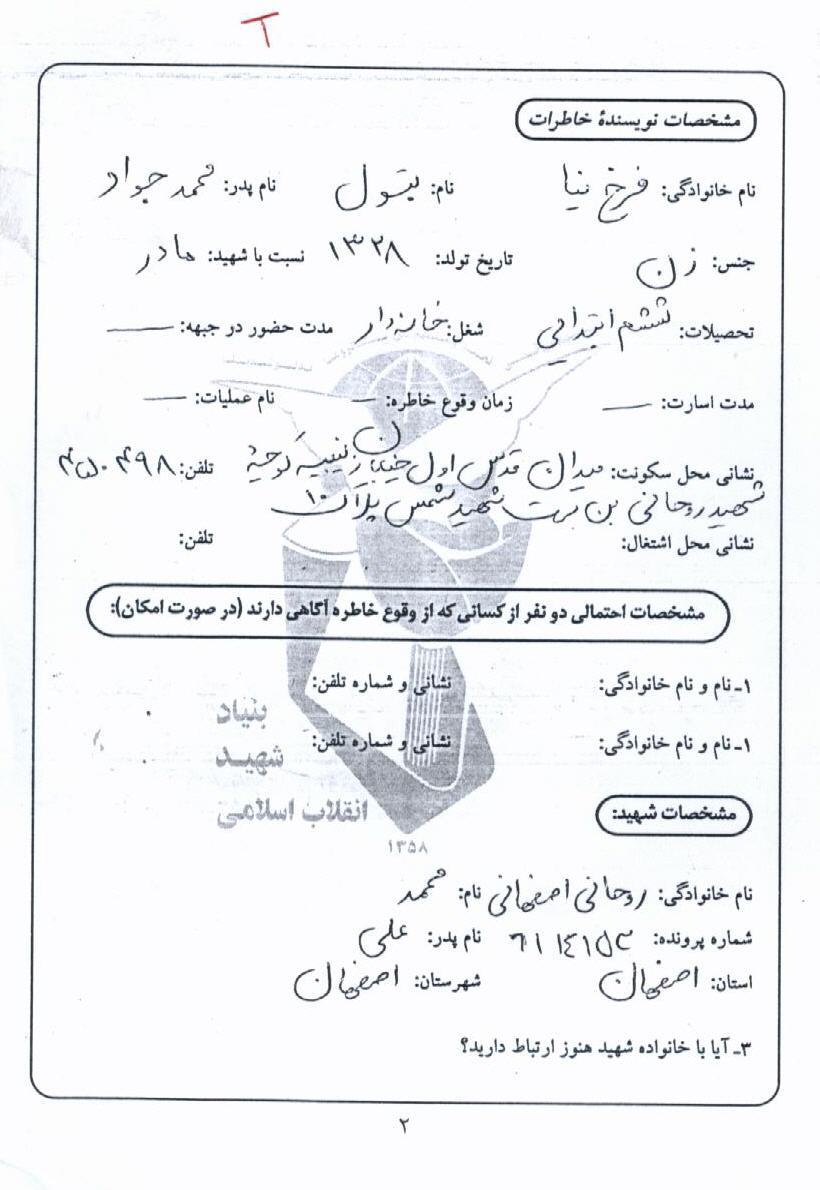 T
مشخصات نویسندهٔ خاطرات
نام خانوادگی: فرخ نیا نام: بتول نام پدر: محمد جواد
جنس: زن تاریخ تولد: ۱۳۲۸ نسبت با شهید: مادر
تحصیلات: ششم ابتدایی شغل: خانه دار مدت حضور در جبهه: —
مدت اسارت: — زمان وقوع خاطره: — نام عملیات: —
نشانی محل سکونت: میدان قدس اول خیابان زینبیه کوچه تلفن:
شهید روحانی بن بست شهید شمس پلاک ۱۰
نشانی محل اشتغال: تلفن:
مشخصات احتمالی دو نفر از کسانی که از وقوع خاطره آگاهی دارند (در صورت امکان):
۱ـ نام و نام خانوادگی: نشانی و شماره تلفن:
۱ـ نام و نام خانوادگی: نشانی و شماره تلفن:
بنیاد
شهید
انقلاب اسلامی
۱۳۵۸
مشخصات شهید:
نام خانوادگی: روحانی اصفهانی نام: محمد
شماره پرونده: نام پدر: علی
استان: اصفهان شهرستان: اصفهان
۳ـ آیا با خانواده شهید هنوز ارتباط دارید؟
۲